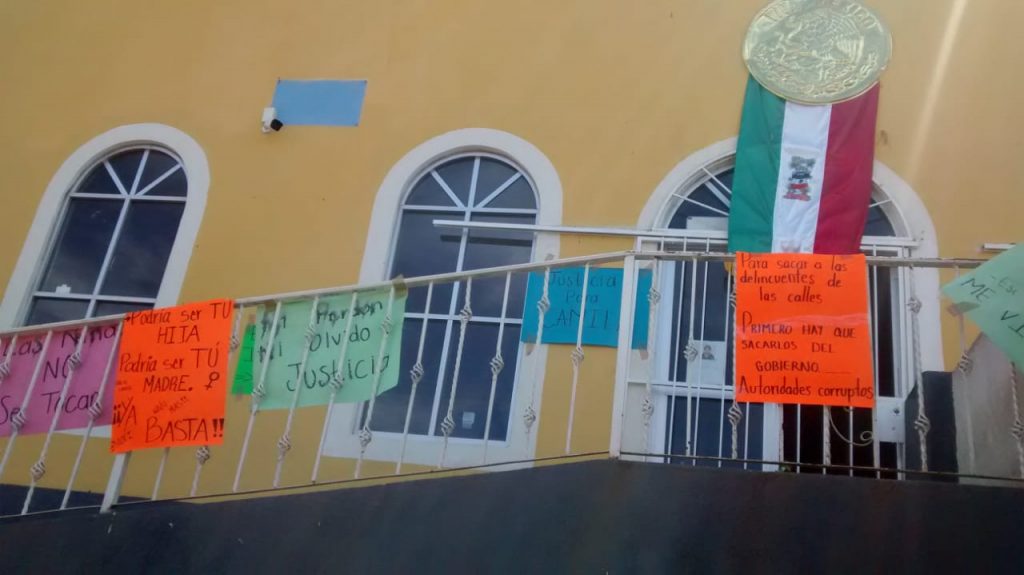 Las Niñas
NO
Se Tocan
Podría ser TU
HIJA
Podría ser TÚ
MADRE. ♀
¡¡YA
BASTA!!
Ni Perdón
Ni Olvido
JUSTICIA
Justicia
Para
CAMILA
Para sacar a las
delincuentes de
las calles
PRIMERO HAY QUE
SACARLOS DEL
GOBIERNO
Autoridades corruptos
ME